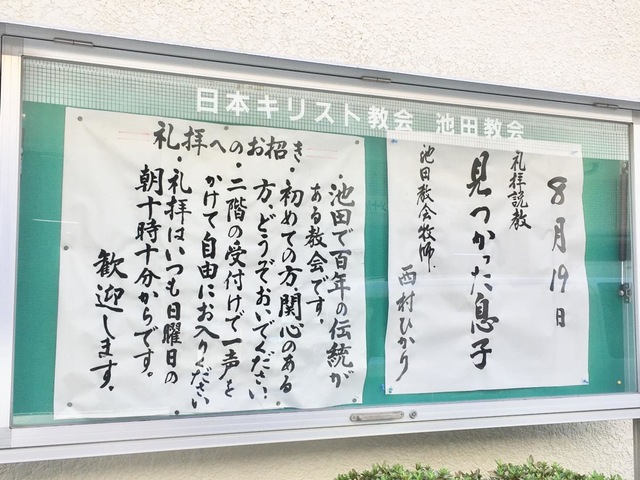 日本キリスト教会 池田教会
8月19日
礼拝説教
見つかった息子
池田教会牧師. 西村ひかり
礼拝へのお招き
・池田で百年の伝統が
ある教会です。
・初めての方、関心のある
方、どうぞおいでください。
・二階の受付けで一声を
かけて自由にお入りください
・礼拝はいつも日曜日の
朝十時十分からです。
歓迎します。